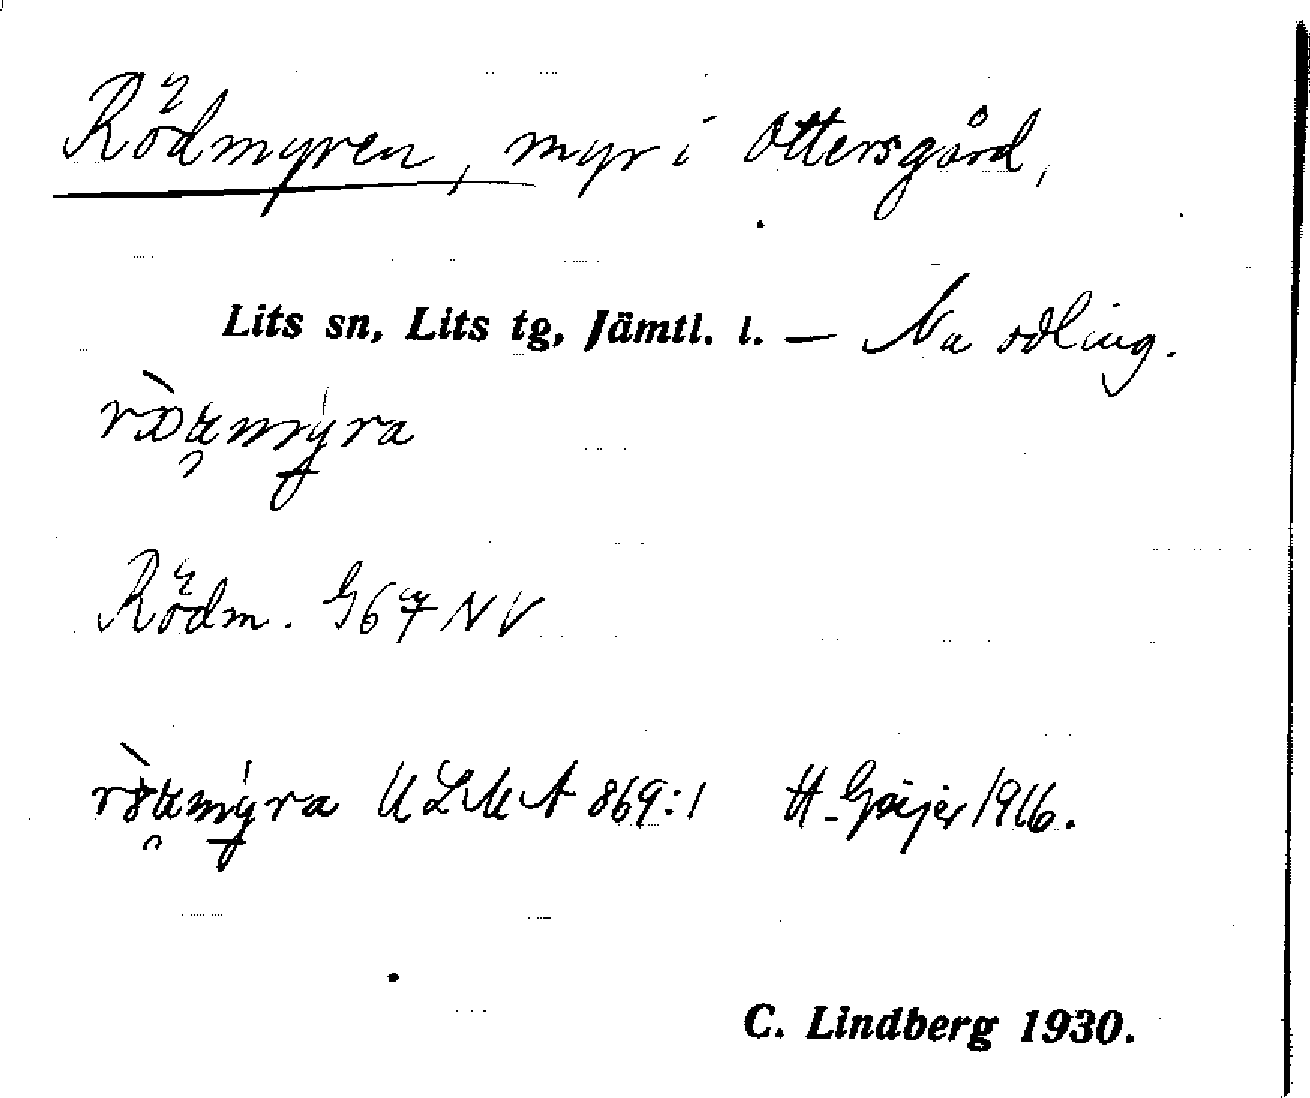 Rödmyren, myr i Ottersgård,
Lits sn, Lits tg, Jämtl. l. — Nu odling.
Rödm. G67 NV
ULMA 869:1 H. Geijer 1916.
C. Lindberg 1930.